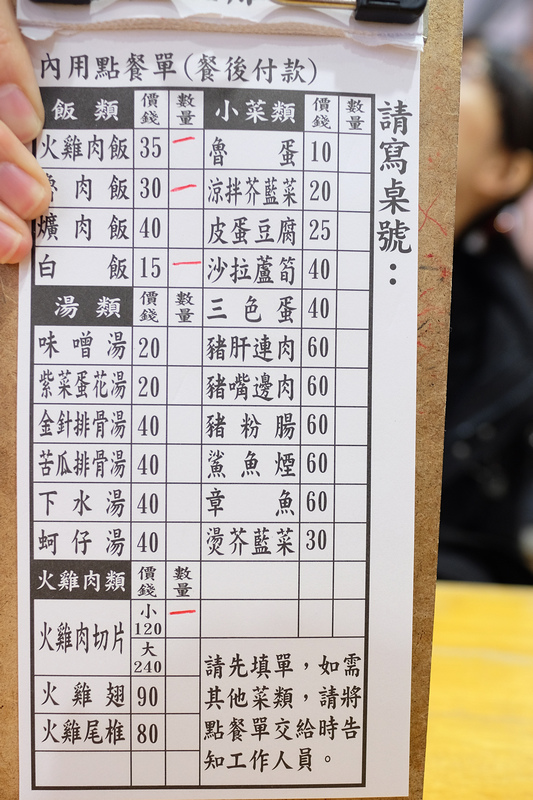 內用點餐單(餐後付款)
飯類 價錢 數量 小菜類 價錢 數量
火雞肉飯 35 一 魯蛋 10
魯肉飯 30 一 涼拌芥藍菜 20
爌肉飯 40 皮蛋豆腐 25
白飯 15 一 沙拉蘆筍 40
湯類 價錢 數量 三色蛋 40
味噌湯 20 豬肝連肉 60
紫菜蛋花湯 20 豬嘴邊肉 60
金針排骨湯 40 豬粉腸 60
苦瓜排骨湯 40 鯊魚煙 60
下水湯 40 章魚 60
蚵仔湯 40 燙芥藍菜 30
火雞肉類 價錢 數量
火雞肉切片 小 120 一
大 240
火雞翅 90
火雞尾椎 80
請先填單，如需
其他菜類，請將
點餐單交給時告
知工作人員。
請寫桌號：